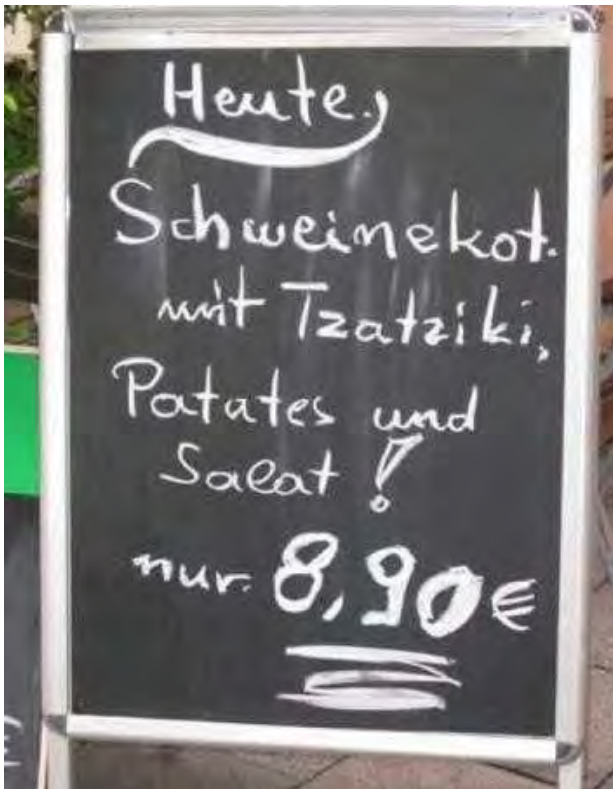 Heute.
Schweinekot.
mit Tzatziki,
Patates und
Salat!
nur. 8,90€